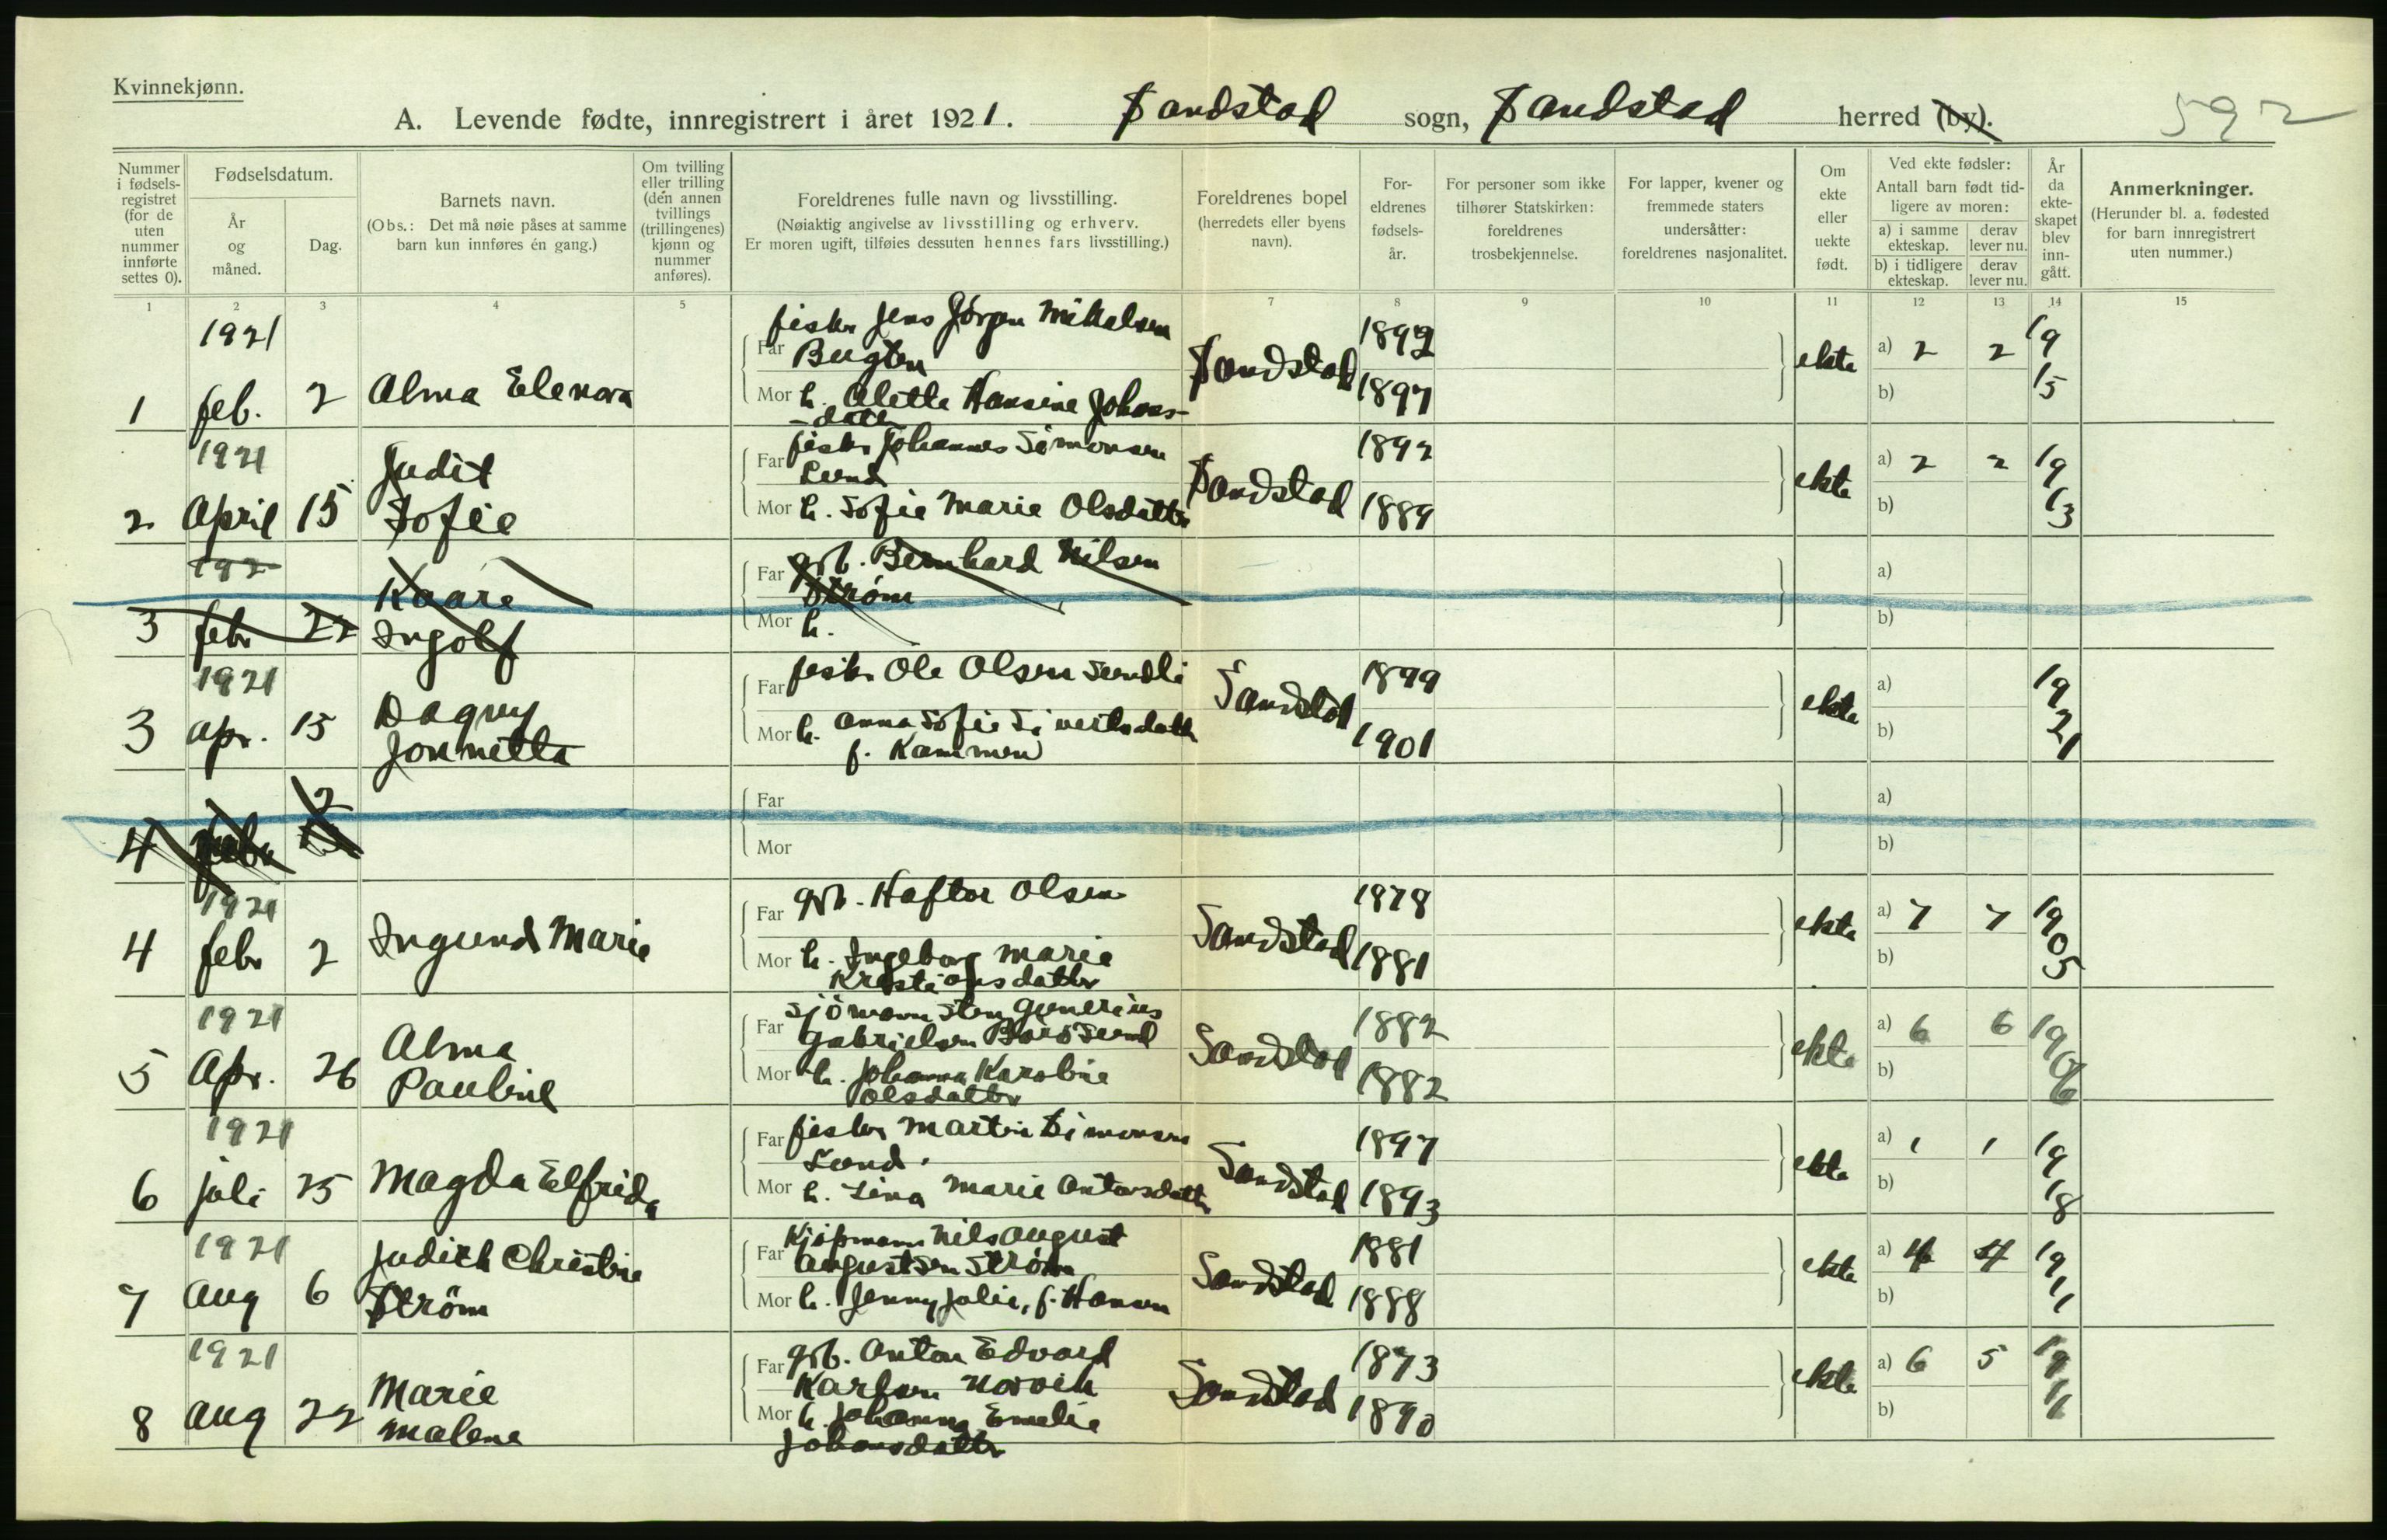 Kvinnekjønn.
A. Levende fødte, innregistrert i året 1921. Sandstad sogn, Sandstad herred (by). 592
Nummer i fødsels-registret (for de uten nummer innførte settes 0).
Fødselsdatum.
År og måned.
Dag.
Barnets navn.
(Obs.: Det må nøie påses at samme barn kun innføres én gang.)
Om tvilling eller trilling (den annen tvillings (trillingenes) kjønn og nummer anføres).
Foreldrenes fulle navn og livsstilling.
(Nøiaktig angivelse av livsstilling og erhverv.
Er moren ugift, tilføies dessuten hennes fars livsstilling.)
Foreldrenes bopel (herredets eller byens navn).
For-eldrenes fødsels-år.
For personer som ikke tilhører Statskirken: foreldrenes trosbekjennelse.
For lapper, kvener og fremmede staters undersåtter: foreldrenes nasjonalitet.
Om ekte eller uekte født.
Ved ekte fødsler:
Antall barn født tid-ligere av moren:
a) i samme ekteskap.
derav lever nu.
b) i tidligere ekteskap.
derav lever nu.
År da ekte-skapet blev inn-gått.
Anmerkninger.
(Herunder bl. a. fødested for barn innregistrert uten nummer.)
1 2 3 4 5 7 8 9 10 11 12 13 14 15
1921
1 feb. 2 Alma Elenora
Far fisker Jens Jörgen Mikalsen
Bugten
Mor h. Alette Hansine Johans-
datter
Sandstad 1892 1897 ekte a) 2 2 1915
b)
1921
2 April 15 Judit
Sofie
Far fisker Johannes Simonsen
Lund
Mor h. Sofie Marie Olsdatter
Sandstad 1892 1889 ekte a) 2 2 1913
b)
192
3 febr 22 Kaare
Ingolf
Far grb. Bernhard Nilsen
Strøm
Mor h.
a)
b)
1921
3 Apr. 15 Dagny
Jonnetta
Far fisker Ole Olsen Sundli
Mor h. Anna Sofie Sivertsdatter
f. Kammen
Sandstad 1899 1901 ekte a) 1921
b)
4 febr 2
Far
Mor
a)
b)
1921
4 febr 2 Ingund Marie
Far grb. Haftor Olsen
Mor h. Ingeborg Marie
Kristiansdatter
Sandstad 1878 1881 ekte a) 7 7 1905
b)
1921
5 Apr. 26 Alma
Pauline
Far Sjömann Sten Gunerius
Gabrielsen
Mor h. Johanna Karoline
Olsdatter
Sandstad 1882 1882 ekte a) 6 6 1906
b)
1921
6 juli 25 Magda Elfrida
Far fisker Martin Simonsen
Lund.
Mor h. Lina Marie Antonsdatter
Sandstad 1897 1893 ekte a) 1 1 1918
b)
1921
7 Aug 6 Judith Christine
Ström
Far Kjöpmann Nils August
Augustsen Ström
Mor h. Jenny Julie, f. Hansen
Sandstad 1881 1888 ekte a) 4 4 1911
b)
1921
8 Aug 22 Marie
Malene
Far grb. Anton Edvard
Karlsen Norvik
Mor h. Johanna Emelie
Johansdatter
Sandstad 1873 1890 ekte a) 6 5 1911
b)